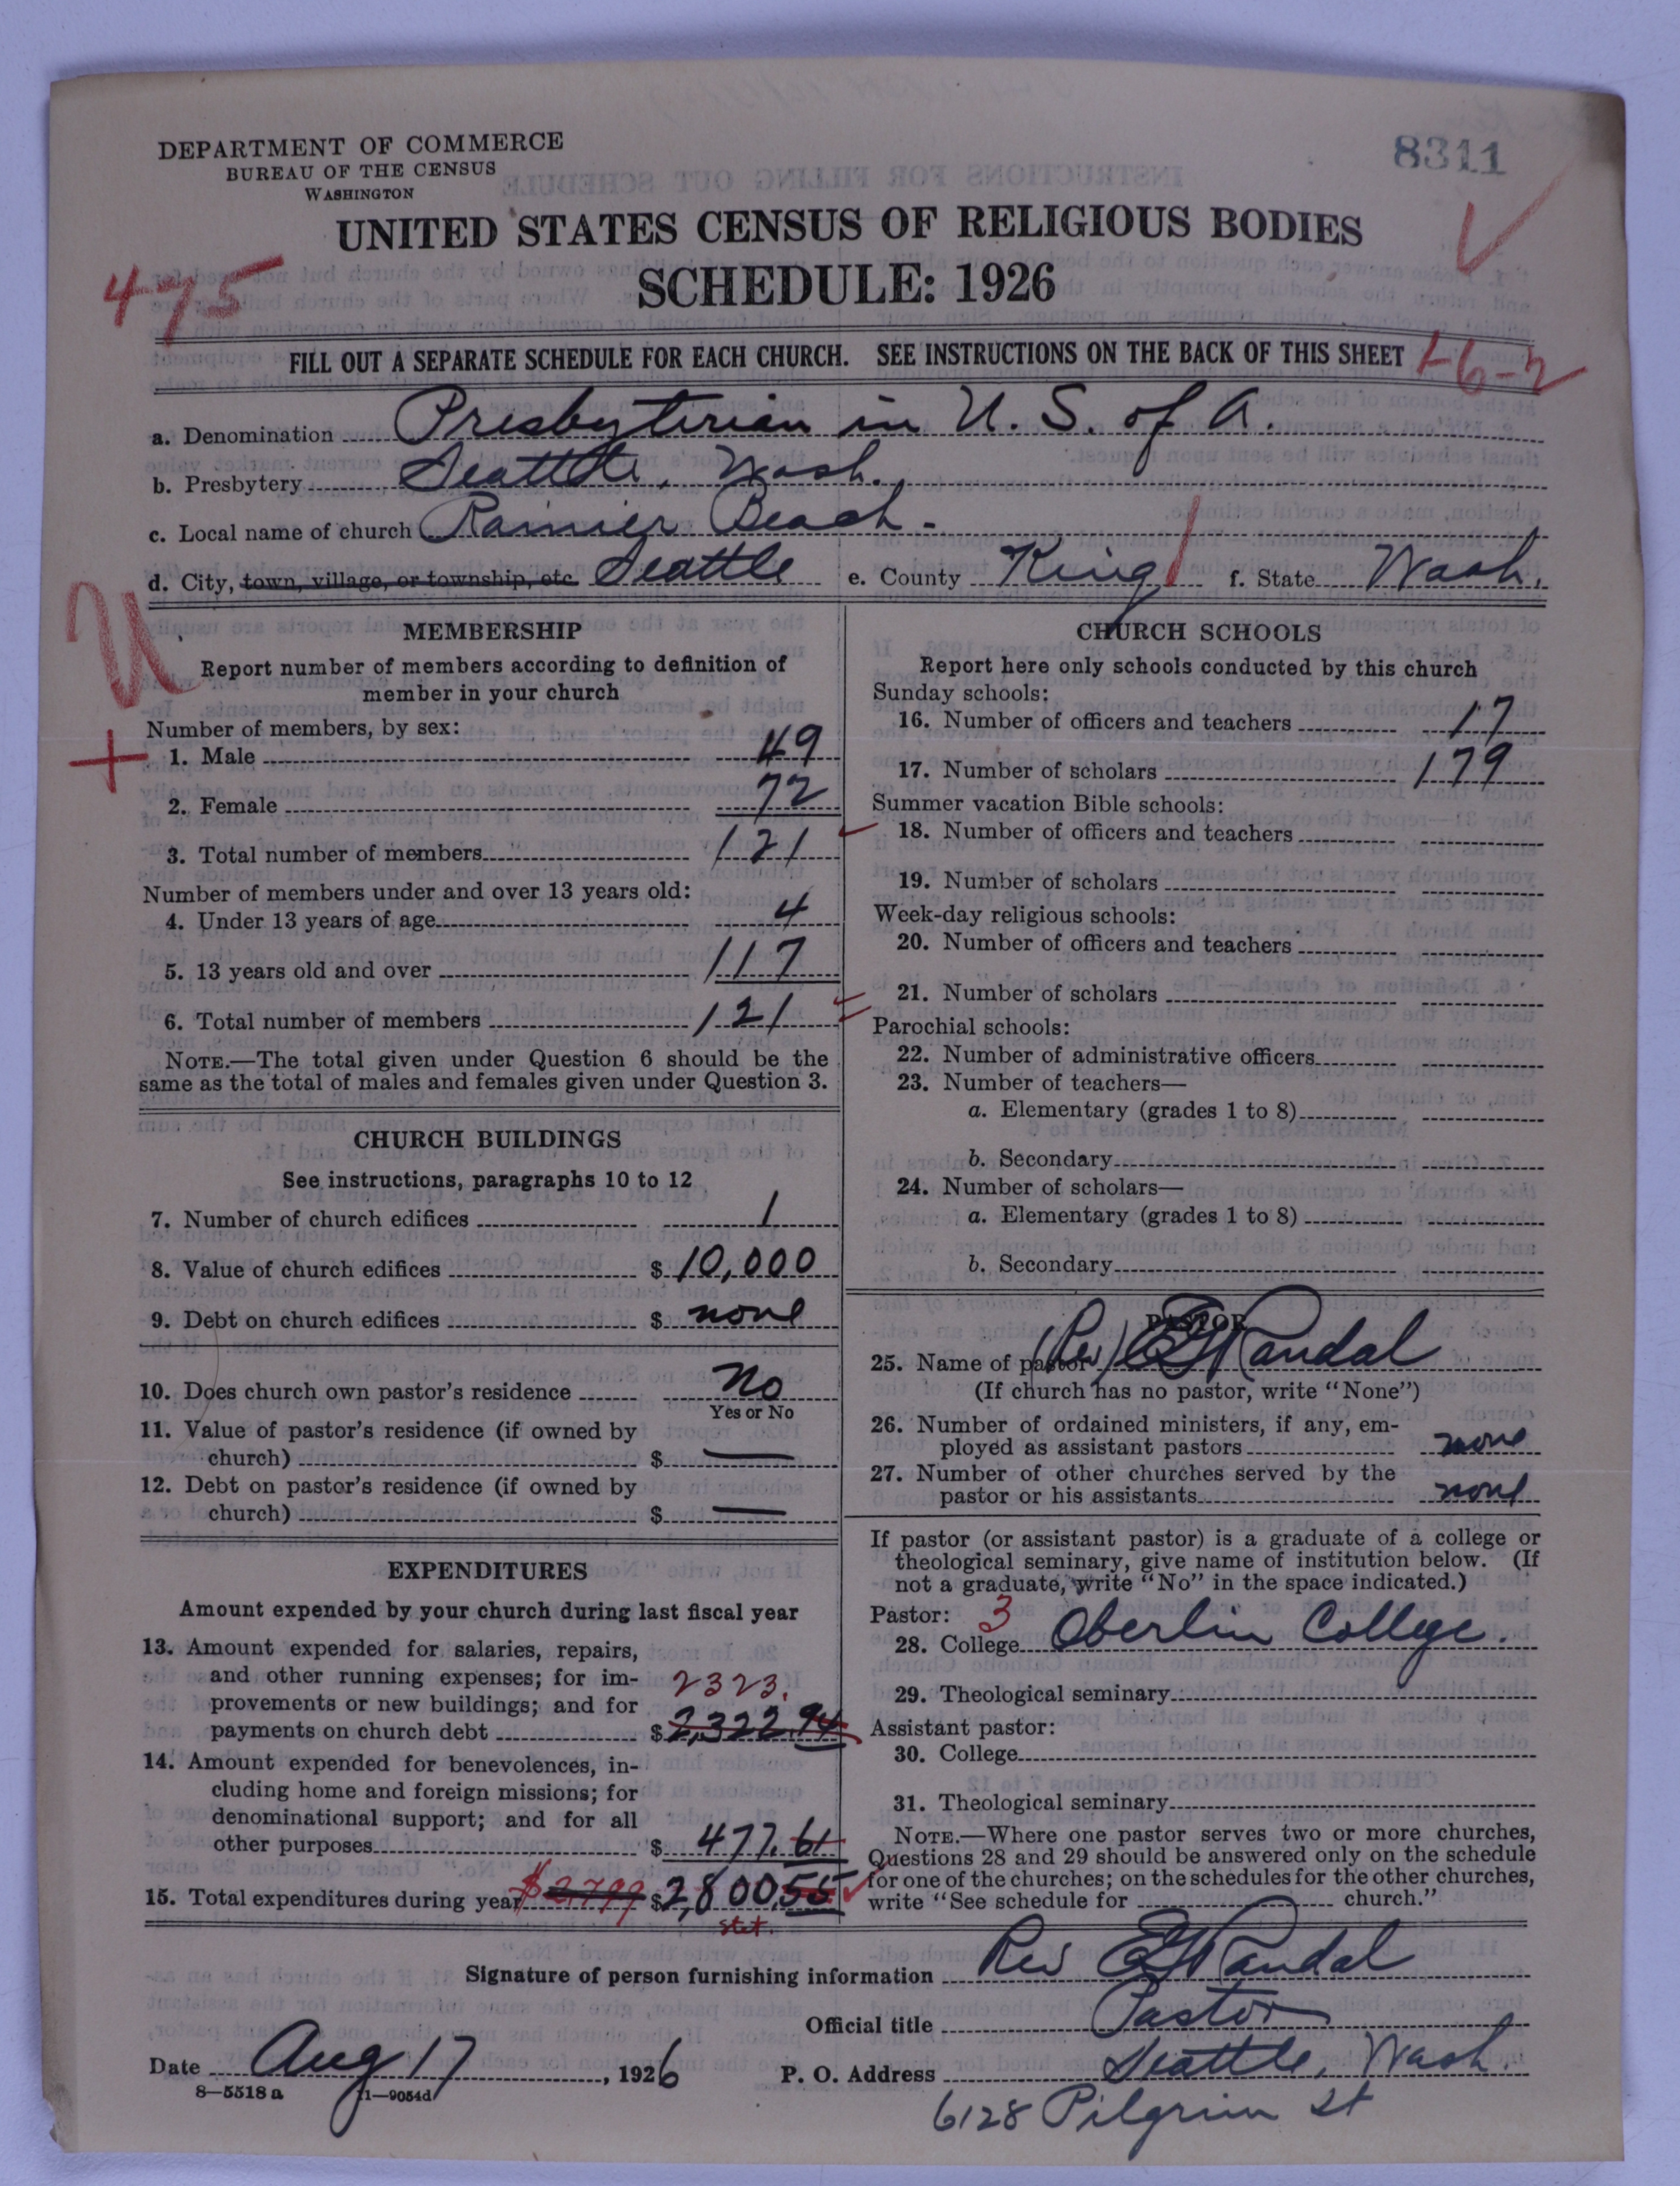 8311
DEPARTMENT OF COMMERCE
BUREAU OF THE CENSUS
WASHINGTON
UNITED STATES CENSUS OF RELIGIOUS BODIES
SCHEDULE: 1926
475
FILL OUT A SEPARATE SCHEDULE FOR EACH CHURCH. SEE INSTRUCTIONS ON THE BACK OF THIS SHEET
1-6-2
a. Denomination Presbyterian in U. S. of A.
b. Presbytery Seattle, Wash.
c. Local name of church Rainier Beach.
d. City, town, village, or township, etc. Seattle e. County King f. State Wash.
U
MEMBERSHIP
Report number of members according to definition of
member in your church
Number of members, by sex:
+ 1. Male 49
2. Female 72
3. Total number of members 121
Number of members under and over 13 years old:
4. Under 13 years of age 4
5. 13 years old and over 117
6. Total number of members 121
NOTE.—The total given under Question 6 should be the
same as the total of males and females given under Question 3.
CHURCH BUILDINGS
See instructions, paragraphs 10 to 12
7. Number of church edifices 1
8. Value of church edifices $ 10,000
9. Debt on church edifices $ none
10. Does church own pastor's residence No
Yes or No
11. Value of pastor's residence (if owned by
church) $ —
12. Debt on pastor's residence (if owned by
church) $ —
EXPENDITURES
Amount expended by your church during last fiscal year
13. Amount expended for salaries, repairs,
and other running expenses; for im-
provements or new buildings; and for 2323.
payments on church debt $ 2,322.94
14. Amount expended for benevolences, in-
cluding home and foreign missions; for
denominational support; and for all
other purposes $ 477.61
15. Total expenditures during year $2,799 $ 2,800.55
stet.
CHURCH SCHOOLS
Report here only schools conducted by this church
Sunday schools:
16. Number of officers and teachers 17
17. Number of scholars 179
Summer vacation Bible schools:
18. Number of officers and teachers
19. Number of scholars
Week-day religious schools:
20. Number of officers and teachers
21. Number of scholars
Parochial schools:
22. Number of administrative officers
23. Number of teachers—
a. Elementary (grades 1 to 8)
b. Secondary
24. Number of scholars—
a. Elementary (grades 1 to 8)
b. Secondary
PASTOR
25. Name of pastor (Rev) Randal
(If church has no pastor, write "None")
26. Number of ordained ministers, if any, em-
ployed as assistant pastors none
27. Number of other churches served by the
pastor or his assistants none
If pastor (or assistant pastor) is a graduate of a college or
theological seminary, give name of institution below. (If
not a graduate, write "No" in the space indicated.)
Pastor: 3
28. College Oberlin College.
29. Theological seminary
Assistant pastor:
30. College
31. Theological seminary
NOTE.—Where one pastor serves two or more churches,
Questions 28 and 29 should be answered only on the schedule
for one of the churches; on the schedules for the other churches,
write "See schedule for church."
Signature of person furnishing information Rev Randal
Official title Pastor
Date Aug 17, 1926 P. O. Address Seattle, Wash.
8—5518 a 11—9054d
6128 Pilgrim St